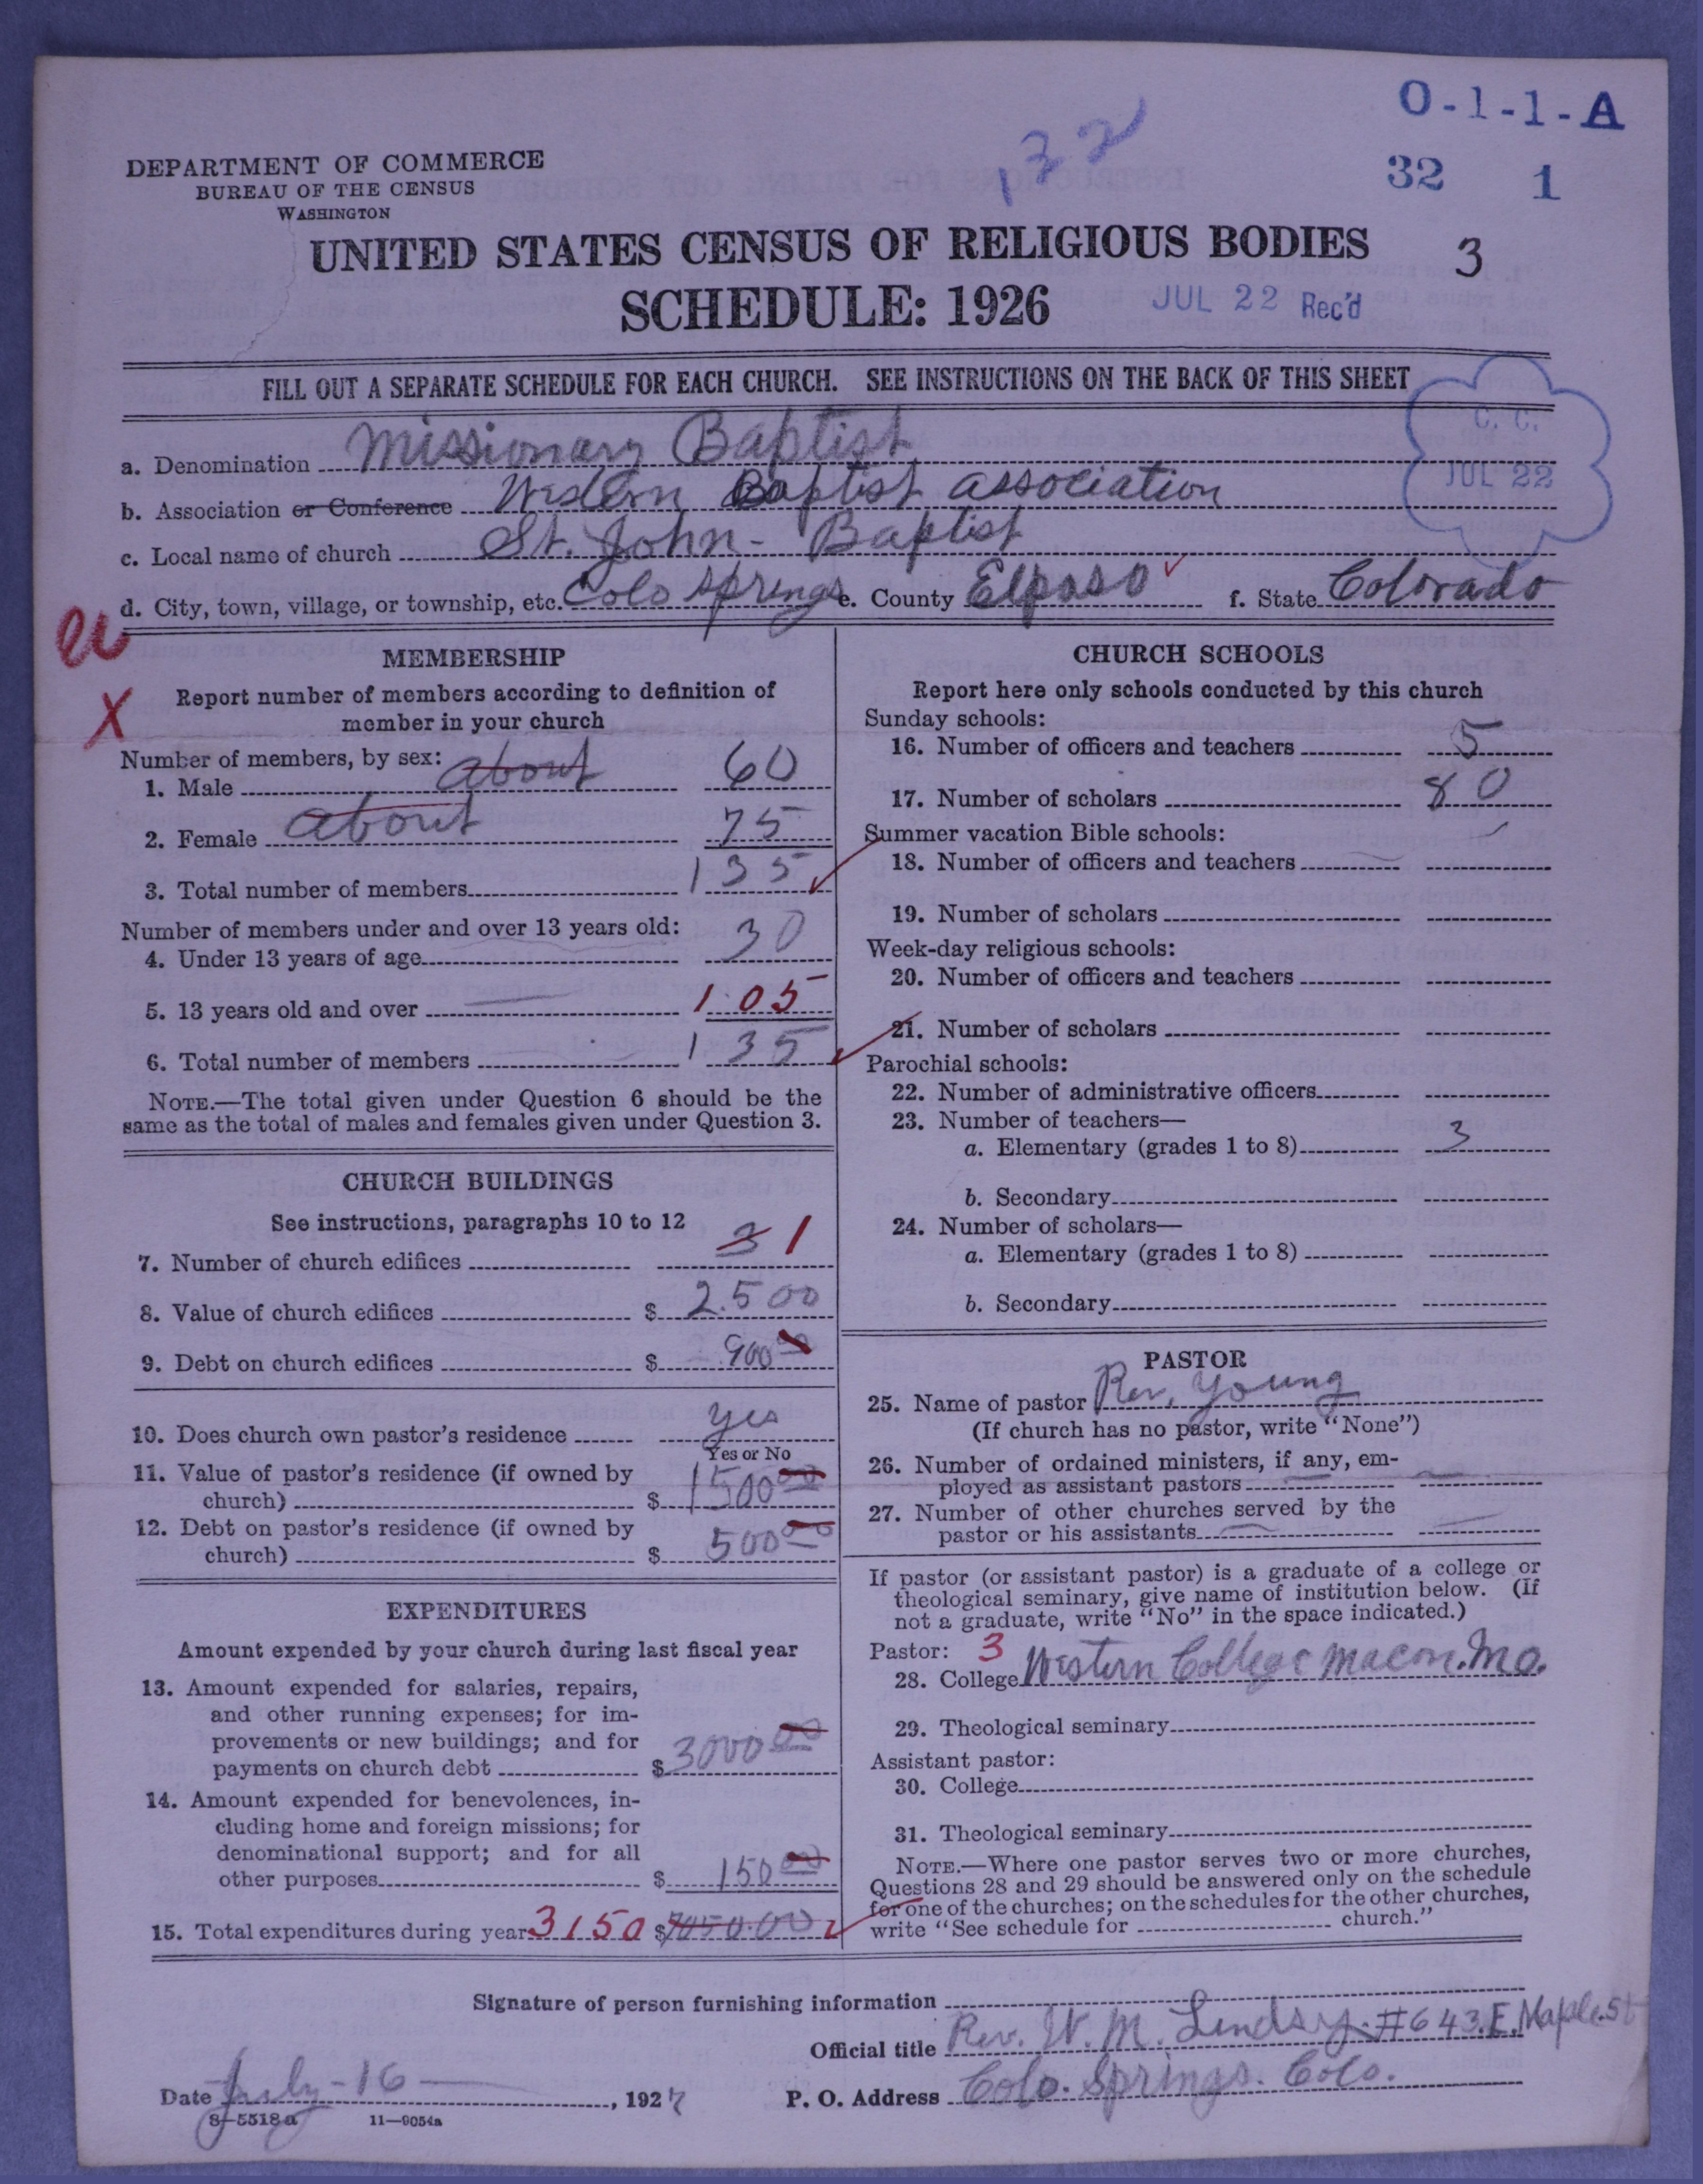 O-1-1-A
132
32 1
DEPARTMENT OF COMMERCE
BUREAU OF THE CENSUS
WASHINGTON
UNITED STATES CENSUS OF RELIGIOUS BODIES 3
SCHEDULE: 1926 JUL 22 Rec'd
FILL OUT A SEPARATE SCHEDULE FOR EACH CHURCH. SEE INSTRUCTIONS ON THE BACK OF THIS SHEET
C. C.
JUL 22
a. Denomination Missionary Baptist
b. Association or Conference Western Baptist association
c. Local name of church St. John - Baptist
d. City, town, village, or township, etc. Colo Springs e. County Elpaso f. State Colorado
X
MEMBERSHIP
Report number of members according to definition of
member in your church
Number of members, by sex:
1. Male about 60
2. Female about 75
3. Total number of members 135
Number of members under and over 13 years old:
4. Under 13 years of age 30
5. 13 years old and over 105
6. Total number of members 135
NOTE.—The total given under Question 6 should be the
same as the total of males and females given under Question 3.
CHURCH BUILDINGS
See instructions, paragraphs 10 to 12
7. Number of church edifices 3 1
8. Value of church edifices $ 2.500
9. Debt on church edifices $ 900 00
10. Does church own pastor's residence yes
Yes or No
11. Value of pastor's residence (if owned by
church) $ 1500 00
12. Debt on pastor's residence (if owned by
church) $ 500 00
EXPENDITURES
Amount expended by your church during last fiscal year
13. Amount expended for salaries, repairs,
and other running expenses; for im-
provements or new buildings; and for
payments on church debt $ 3000 00
14. Amount expended for benevolences, in-
cluding home and foreign missions; for
denominational support; and for all
other purposes $ 150 00
15. Total expenditures during year 3150 $
CHURCH SCHOOLS
Report here only schools conducted by this church
Sunday schools:
16. Number of officers and teachers 5
17. Number of scholars 80
Summer vacation Bible schools:
18. Number of officers and teachers
19. Number of scholars
Week-day religious schools:
20. Number of officers and teachers
21. Number of scholars
Parochial schools:
22. Number of administrative officers
23. Number of teachers—
a. Elementary (grades 1 to 8) 3
b. Secondary
24. Number of scholars—
a. Elementary (grades 1 to 8)
b. Secondary
PASTOR
25. Name of pastor Rev, Young
(If church has no pastor, write "None")
26. Number of ordained ministers, if any, em-
ployed as assistant pastors
27. Number of other churches served by the
pastor or his assistants
If pastor (or assistant pastor) is a graduate of a college or
theological seminary, give name of institution below. (If
not a graduate, write "No" in the space indicated.)
Pastor: 3
28. College Western College Macon. Mo.
29. Theological seminary
Assistant pastor:
30. College
31. Theological seminary
NOTE.—Where one pastor serves two or more churches,
Questions 28 and 29 should be answered only on the schedule
for one of the churches; on the schedules for the other churches,
write "See schedule for church."
Signature of person furnishing information
Official title Rev. W. M. Lindsy. #643. E. Maple. St
Date July - 16 , 1927 P. O. Address Colo. Springs. Colo.
8—5518a 11—9054a